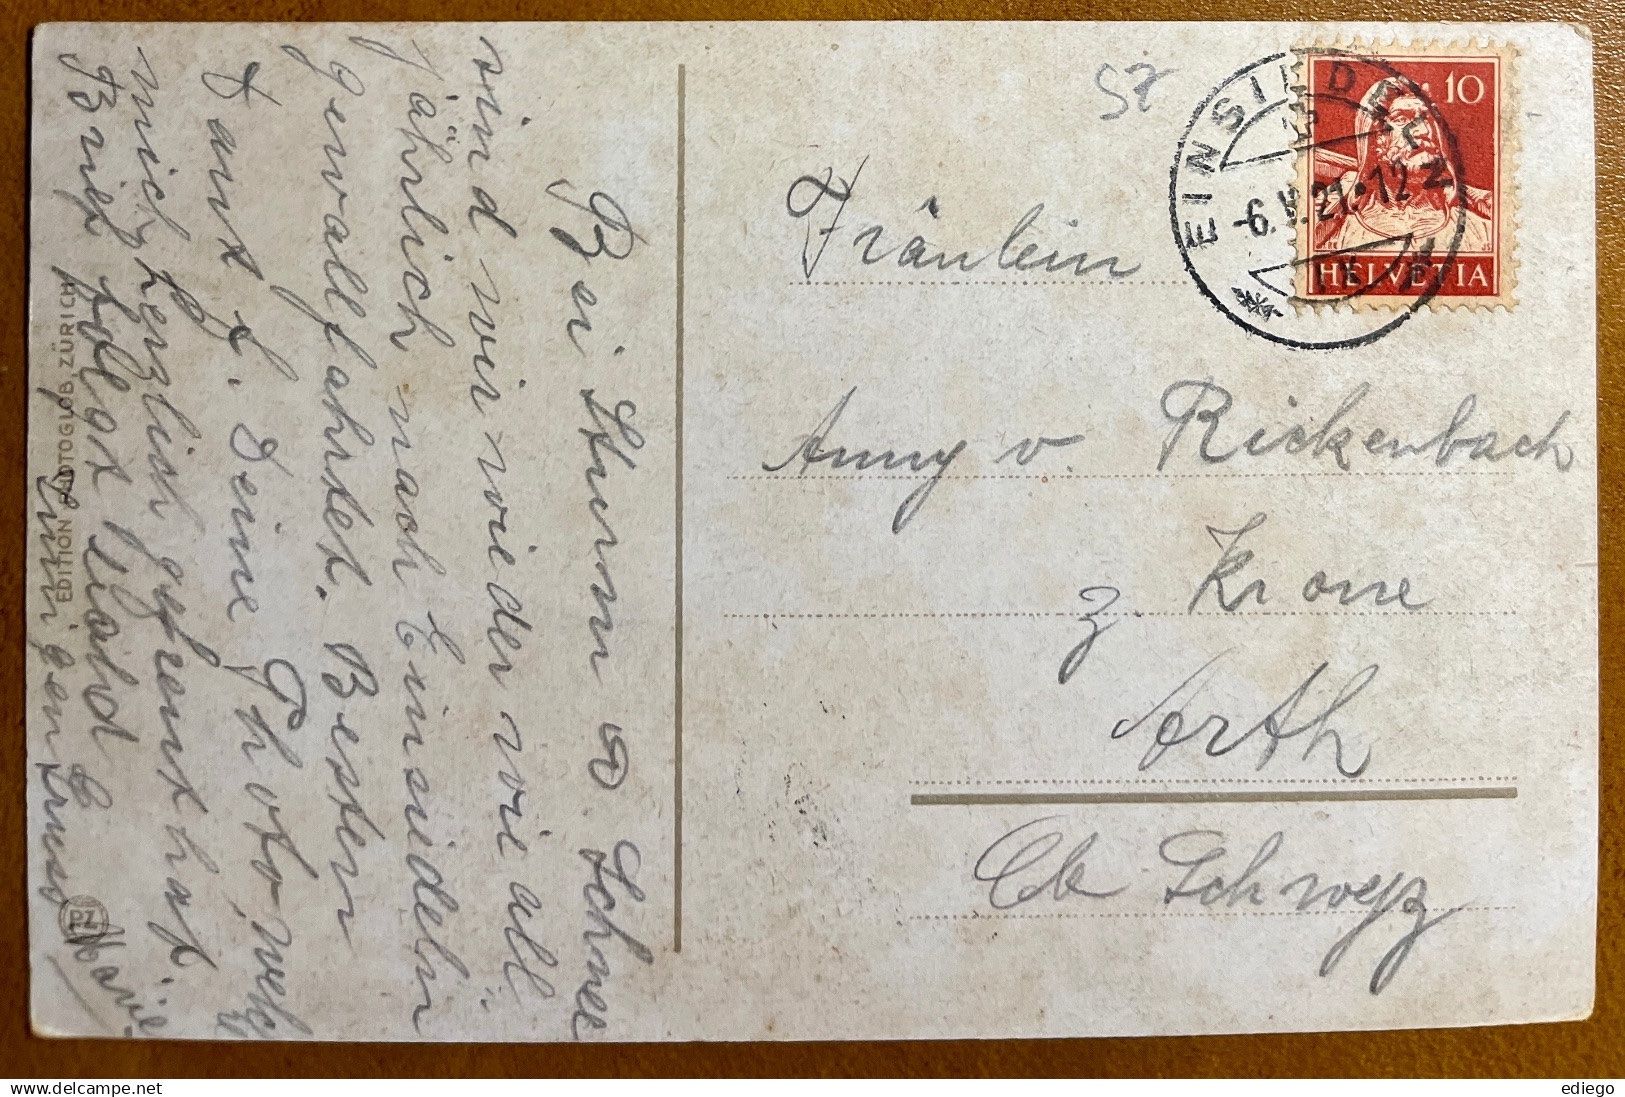 Bei Sturm & Schnee
sind wir wieder wie all-
jährlich nach Einsiedeln
gewallfahrtet. Besten
Dank f. Deine Photo, welche
mich herzlich gefreut hat.
Brief folgt bald
Marie
EDITION PHOTOGLOB, ZÜRICH
PZ
SZ
EINSIEDELN
-6.V.21.-12
10
HELVETIA
Fräulein
Anny v. Rickenbach
z. Krone
Arth
Ct. Schwyz
ediego